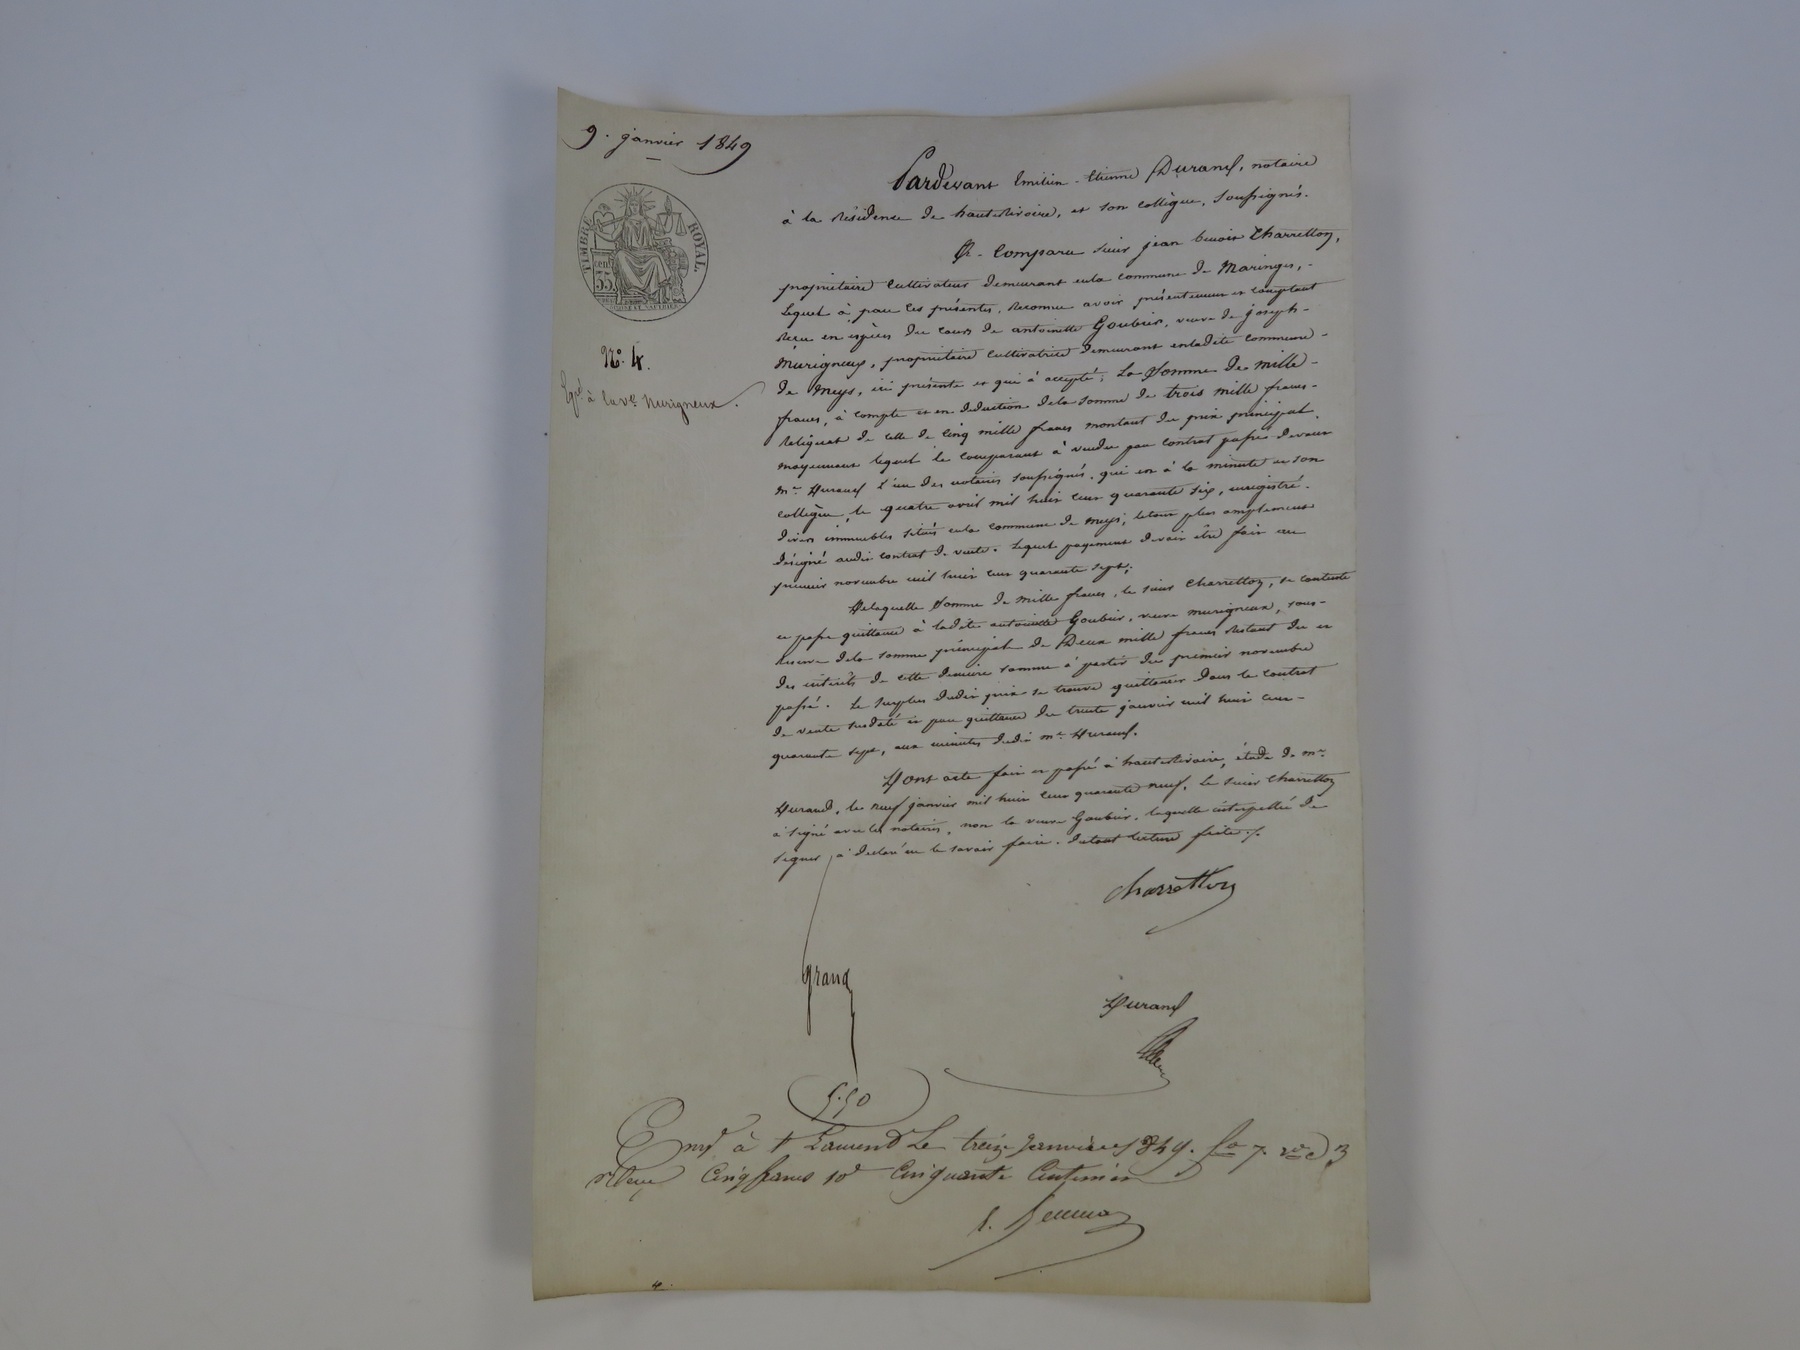 9. janvier 1849
TIMBRE ROYAL.
cent. 35.
N.o 4.
Eqée à la ve. Murigneux.
Pardevant Emilien-Etienne Durand, notaire
à la résidence de hauterivoire, et son collègue, soussignés.
A Comparu Sieur jean benoit Charretton,
propriétaire Cultivateur demeurant enla commune de Maringes,
Lequel à par ces présentes, Reconnu avoir présentement et comptant
Reçu en espèces du cours de antoinette Goubier, veuve de joseph
Murigneux, propriétaire Cultivatrice demeurant enladite commune
de Meys, ici présente et qui à accepté; La Somme de Mille
francs, à compte et en déduction dela somme de trois mille francs
Reliquat de celle de Cinq mille francs montant du prix principal,
moyennant lequel le comparant à vendu par contrat passé devant
Mre. Durand l'un des notaires soussignés, qui en à la minute et son
collègue, le quatre avril mil huit cent quarante six, enregistré.
divers immeubles situés enla commune de Meys; letout plus amplement
désigné audit contrat de vente. Lequel payement devait être fait au
premier novembre mil huit cent quarante sept;
Delaquelle Somme de Mille francs, le sieur Charretton, se contente
et passe quittance à ladite antoinette Goubier, veuve murigneux, sous
réserve dela somme principale de Deux mille francs Restant due et
des intérêts de cette dernière somme à partir du premier novembre
passé. Le surplus dudit prix se trouve quittancé dans le contrat
de vente susdaté et par quittance du trente janvier mil huit cent
quarante sept, aux minutes dudit me. Durand.
Dont acte fait et passé à hauterivoire, étude de me.
Durand, le neuf janvier mil huit cent quarante neuf, Le sieur Charretton
à signé avec les notaires, non la veuve Goubier, laquelle interpellée de
signer à déclaré ne le savoir faire. Detout lecture faite./.
charretton
grand
Durand
5.50
Enré à St Laurent Le treize Janvier 1849. fo 7. ro C 3
Reçu Cinq francs 10e Cinquante Centimes